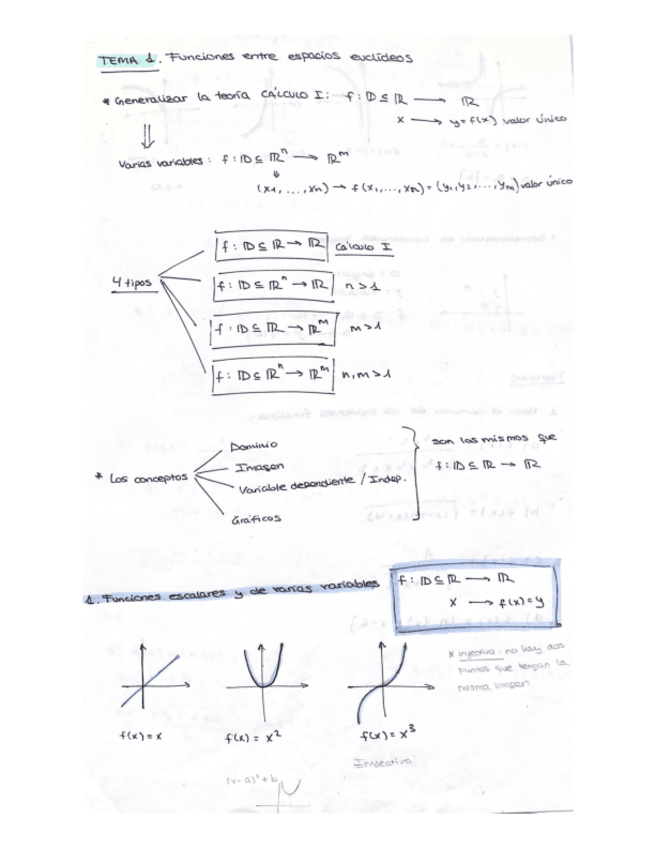 TEMA 1. Funciones entre espacios euclídeos
* Generalizar la teoría CÁLCULO I: f: D ⊆ ℝ ⟶ ℝ
x ⟶ y = f(x) valor único
Varias variables: f: D ⊆ ℝⁿ ⟶ ℝᵐ
(x₁, ..., xₙ) → f(x₁, ..., xₙ) = (y₁, y₂, ..., yₘ) valor único
4 tipos
f: D ⊆ ℝ → ℝ Cálculo I
f: D ⊆ ℝⁿ → ℝ n > 1
f: D ⊆ ℝ → ℝᵐ m > 1
f: D ⊆ ℝⁿ → ℝᵐ n, m > 1
* Los conceptos
Dominio
Imagen
Variable dependiente / Indep.
Gráficos
son los mismos que
f: D ⊆ ℝ → ℝ
1. Funciones escalares y de varias variables
f: D ⊆ ℝ ⟶ ℝ
x ⟶ f(x) = y
* inyectiva: no hay dos
puntos que tengan la
misma imagen
f(x) = x
f(x) = x²
f(x) = x³
Inyectiva
(x-a)² + b